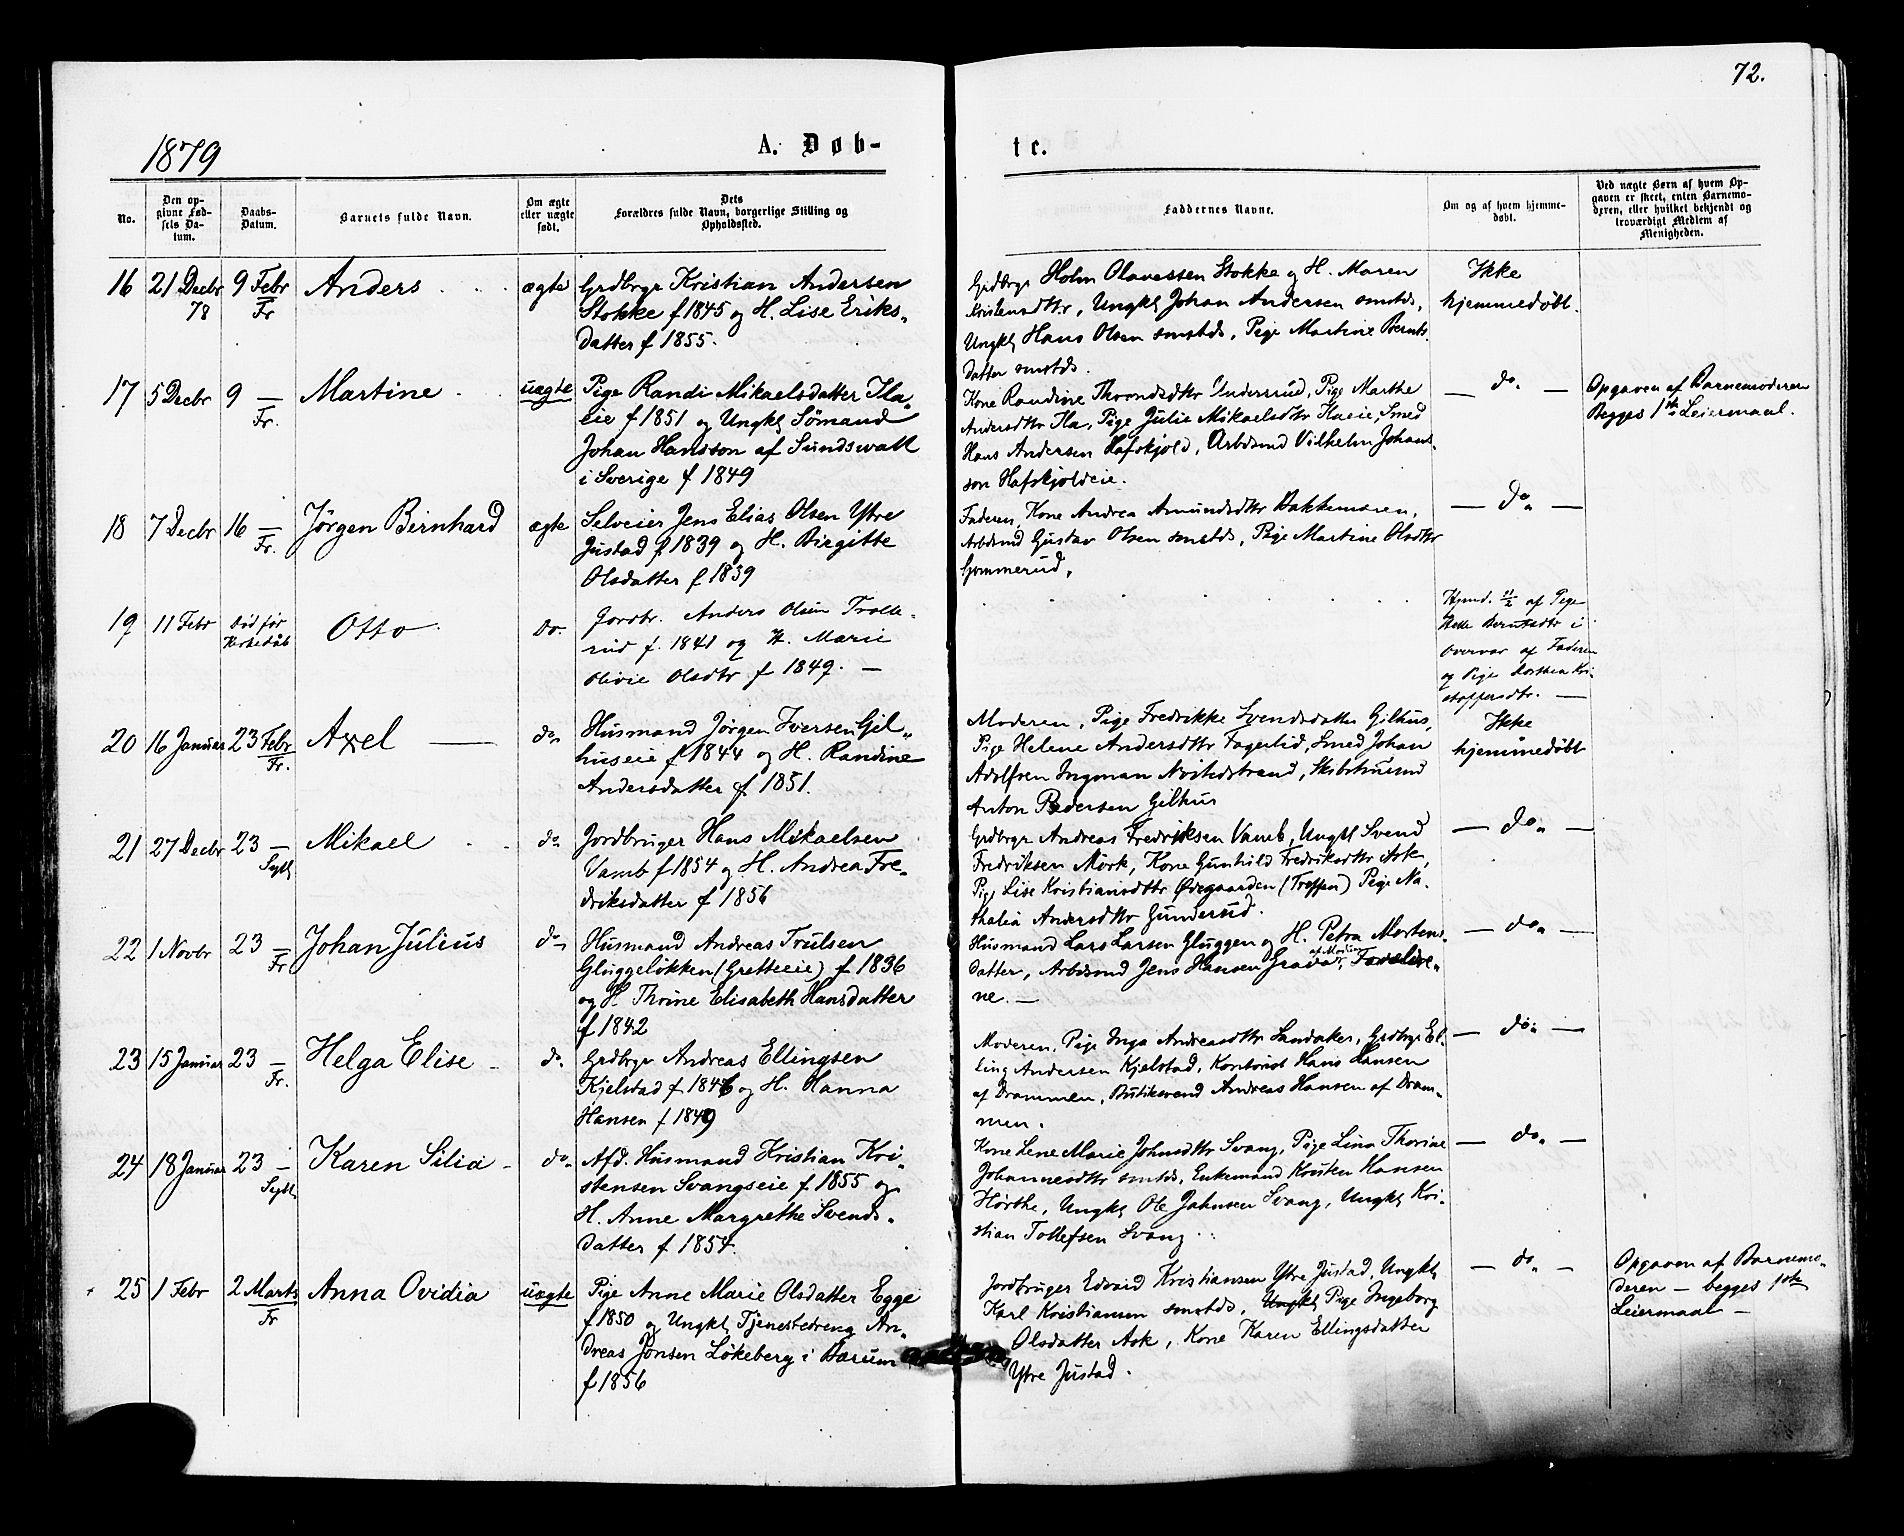 72.
1879
A. Døb-
te.
No.
Den op-
givne Fød-
sels Da-
tum.
Daabs-
Datum.
Barnets fulde Navn.
Om ægte
eller uægte
født.
Dets
Forældres fulde Navn, borgerlige Stilling og
Opholdssted.
Faddernes Navne.
Om og af hvem hjemme-
døbt.
Ved uægte Børn af hvem Op-
gaven er skeet, enten Barnemo-
deren, eller hvilket bekjendt og
troværdigt Medlem af
Menigheden.
16 21 Decbr 9 Febr Anders ægte
78 Fr
Grdbrgr Kristian Andersen
Stokke f 1845 og H. Lise Eriks-
datter f 1855.
Grdbrgr Holm Olavessen Stokke og H. Maren
Kristensdttr, Ungkl Johan Andersen smstds,
Ungkl Hans Olsen smstds, Pige Martine Bernts
datter smstds.
Ikke
hjemmedøbt.
17 5 Decbr 9 — Martine uægte
Fr.
Pige Randi Mikaelsdatter Ila-
eie f 1851 og Ungkl Sömand
Johan Hansson af Sundswall
i Sverige f 1849
Kone Randine Throndsdttr Undersrud, Pige Marthe
Andersdttr Ila, Pige Julie Mikaelsdttr Ilaeie, Smed
Hans Andersen Hafskjold, Arbdsmd Vilhelm Johans-
son Hafskjoldeie.
— do. —
Opgaven af Barnemoderen
Begges 1ste Leiermaal.
18 7 Decbr 16 — Jörgen Bernhard ægte
Fr.
Selveier Jens Elias Olsen Ytre
Justad f 1839 og H. Birgitte
Olsdatter f 1839
Faderen, Kone Andrea Amundsdttr Bakkemoren,
Arbdsmd Gustav Olsen smstds, Pige Martine Olsdttr
Gommerud.
— do. —
19 11 Febr død før Otto do.
Kirkedåb
Jordbr. Anders Olsen Trolle-
rud f. 1841 og H. Marie
Olivie Olsdtr f 1849. —
Hjmd. 11/2 af Pige
Helle Berntsdtr i
overvær af Faderen
og Pige Dorthea Kri-
stoffersdtr. —
20 16 Januar 23 Febr Axel — do.
Fr.
Husmand Jörgen Iversen Gil-
huseie f 1844 og H. Randine
Andersdatter f 1851.
Moderen, Pige Fredrikke Svendsdatter Gilhus,
Pige Helene Andersdttr Fagerlid, Smed Johan
Adolfsen Ingman Nøstedstrand, Skibstimrmd
Anton Pedersen Gilhus
Ikke
hjemmedøbt
21 27 Decbr 23 — Mikael do.
Syll
Jordbruger Hans Mikaelsen
Vamb f 1854 og H. Andrea Fre-
driksdatter f 1856
Grdbrgr Andreas Fredriksen Vamb, Ungkl Svend
Fredriksen Mörk, Kone Gunhild Fredriksdttr Ask,
Pige Lise Kristiansdttr Ødegaarden (Treffen) Pige Na-
thalia Andersdttr Gunderud.
— do. —
22 1 Novbr 23 — Johan Julius do.
Fr
Husmand Andreas Trulsen
Gluggelökken (Gretteeie) f 1836
og H. Thrine Elisabeth Hansdatter
f 1842
Husmand Lars Larsen Gluggen og H. Petra Mortens-
datter, Arbdsmd Jens Hansen Grava, Forældre-
ne. —
— do. —
23 15 Januar 23 — Helga Elise do.
Fr.
Grdbrgr Andreas Ellingsen
Kjelstad f 1846 og H. Hanna
Hansen f 1849
Moderen, Pige Inga Andreasdttr Landaker, Grdbrgr El-
ling Andersen Kjelstad, Kontorist Hans Hansen
af Drammen, Butiksvend Andreas Hansen af Dram-
men.
— do. —
24 18 Januar 23 — Karen Silia do.
Syll
Afd. Husmand Kristian Kri-
stensen Svangseie f 1855 og
H. Anne Margrethe Svends-
datter f 1854.
Kone Lene Marie Johnsdttr Svang, Pige Lina Thorine
Johannesdttr smstds, Enkemand Kristen Hansen
Hörthe, Ungkl Ole Johnsen Svang, Ungkl Kri-
stian Tollefsen Svang.
— do. —
25 1 Febr 2 Marts Anna Ovidia uægte
Fr
Pige Anne Marie Olsdatter Egge
f 1850 og Ungkl Tjenestedreng An-
dreas Jonsen Lökeberg i Bærum
f 1856
Jordbruger Edvard Kristiansen Ytre Justad, Ungkl
Karl Kristiansen smstds, Ungkl Pige Ingeborg
Olsdatter Ask, Kone Karen Ellingsdatter
Ytre Justad.
— do. —
Opgaven af Barnemo-
deren — begges 1ste
Leiermaal —